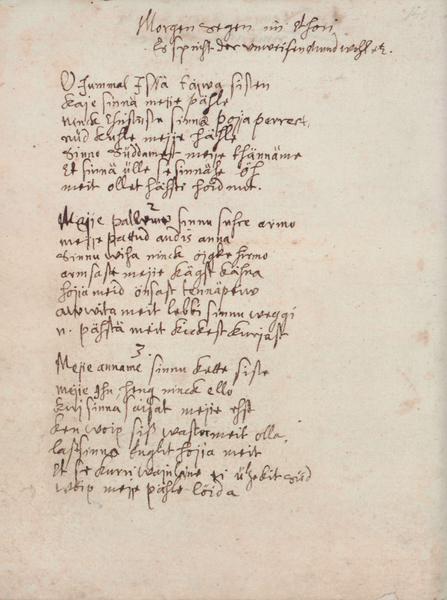 Morgen segen im thon
Es spricht der unweisen mund wohl etc.
O Jummal Issa taiwa sisen
kaje sinna meije pähle
ninck Christusse sinnu poja perrest
nüd kuhle meije hähle
Sinno Süddamest meije thänname
Et sinna ülle se sinnase öh
meit ollet häste hoidnut.
2
Meije pallume sinnu suhre armo
meije pattud andis anna
Sinnu wiha ninck oigke hirmo
armsast meije käest kähna
hojia meid öhsast tennäpeiw
auwita meit lebbi sinnu weggi
n. pähstä meit kickest kurjast
3.
Meije anname sinnu kette sisse
meije Ihu, heng ninck ello
sinna meije ehst
ken woip siss wasto meit olla,
lass sinna Englit hojia meit
Et se kurri wainlane ei ühekit süd
woip meije pähle löida